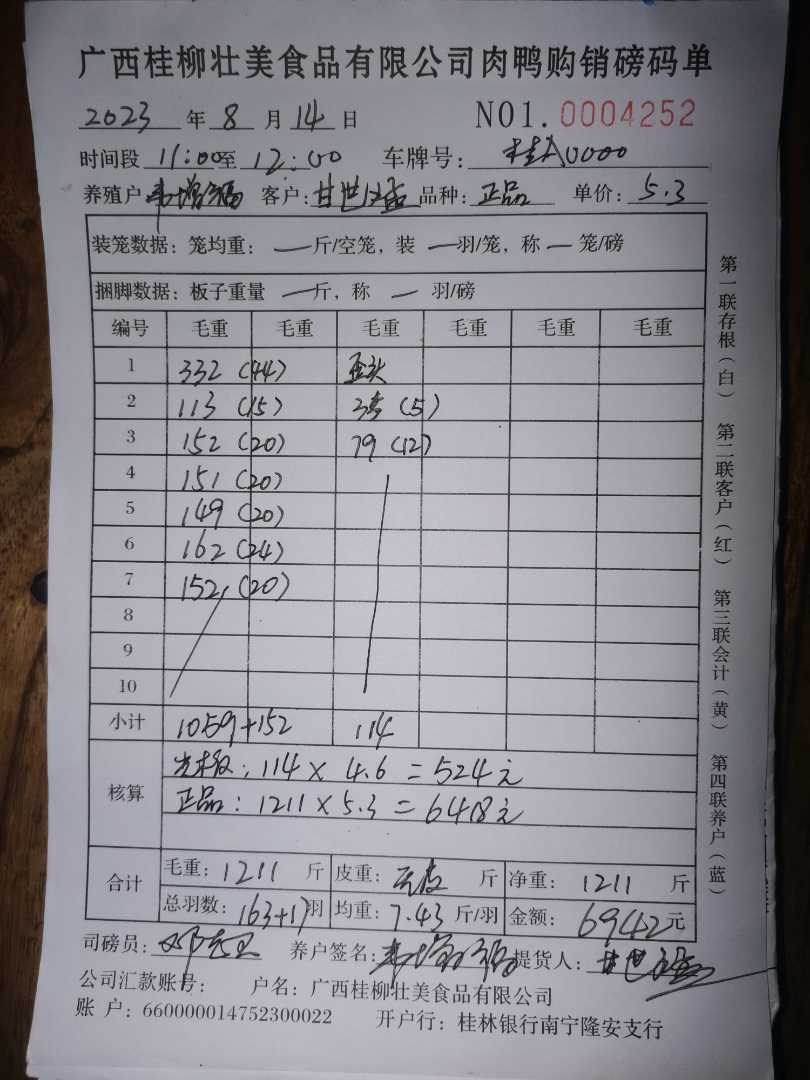 广西桂柳壮美食品有限公司肉鸭购销磅码单
2023 年 8 月 14 日 NO1. 0004252
时间段 11:00 至 12:00 车牌号: 桂A0000
养殖户 韦增福 客户: 甘世 品种: 正品 单价: 5.3
装笼数据: 笼均重: — 斤/空笼, 装 — 羽/笼, 称 — 笼/磅
捆脚数据: 板子重量 — 斤, 称 — 羽/磅
编号 毛重 毛重 毛重 毛重 毛重 毛重
1 332 (44) 歪头
2 113 (15) 35 (5)
3 152 (20) 79 (12)
4 151 (20)
5 149 (20)
6 162 (24)
7 152 (20)
8
9
10
小计 1059+152 114
核算
: 114 × 4.6 = 524元
正品: 1211 × 5.3 = 6418元
合计
毛重: 1211 斤 皮重: 斤 净重: 1211 斤
总羽数: 163+17 羽 均重: 7.43 斤/羽 金额: 6942 元
司磅员: 养户签名: 韦增福 提货人: 甘世
公司汇款账号: 户名: 广西桂柳壮美食品有限公司
账 户: 660000014752300022 开户行: 桂林银行南宁隆安支行
第一联存根(白) 第二联客户(红) 第三联会计(黄) 第四联养户(蓝)